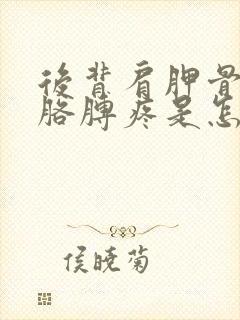 後背肩胛骨
胳膊疼是怎
侯曉菊